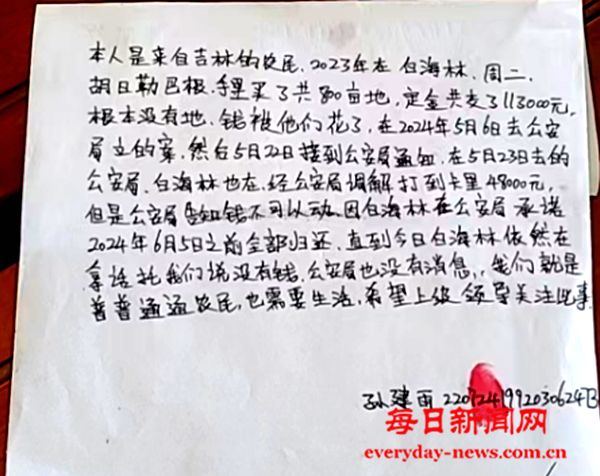 本人是来自吉林的农民，2023年在 白海林，周二，
胡日勒巴根，手里买了共800亩地，定金共支了113000元，
根本没有地，钱被他们花了，在2024年5月6日去公安
局立的案，然后5月22日接到公安局通知，在5月23日去的
公安局，白海林也在，经公安局调解打到卡里48000元，
但是公安局告知钱不可以动，因白海林在公安局承诺
2024年6月5日之前全部归还，直到今日白海林依然在
拿话托我们说没有钱，公安局也没有消息，我们就是
普普通通农民，也需要生活，希望上级领导关注此事
孙建
每日新闻网
everyday-news.com.cn